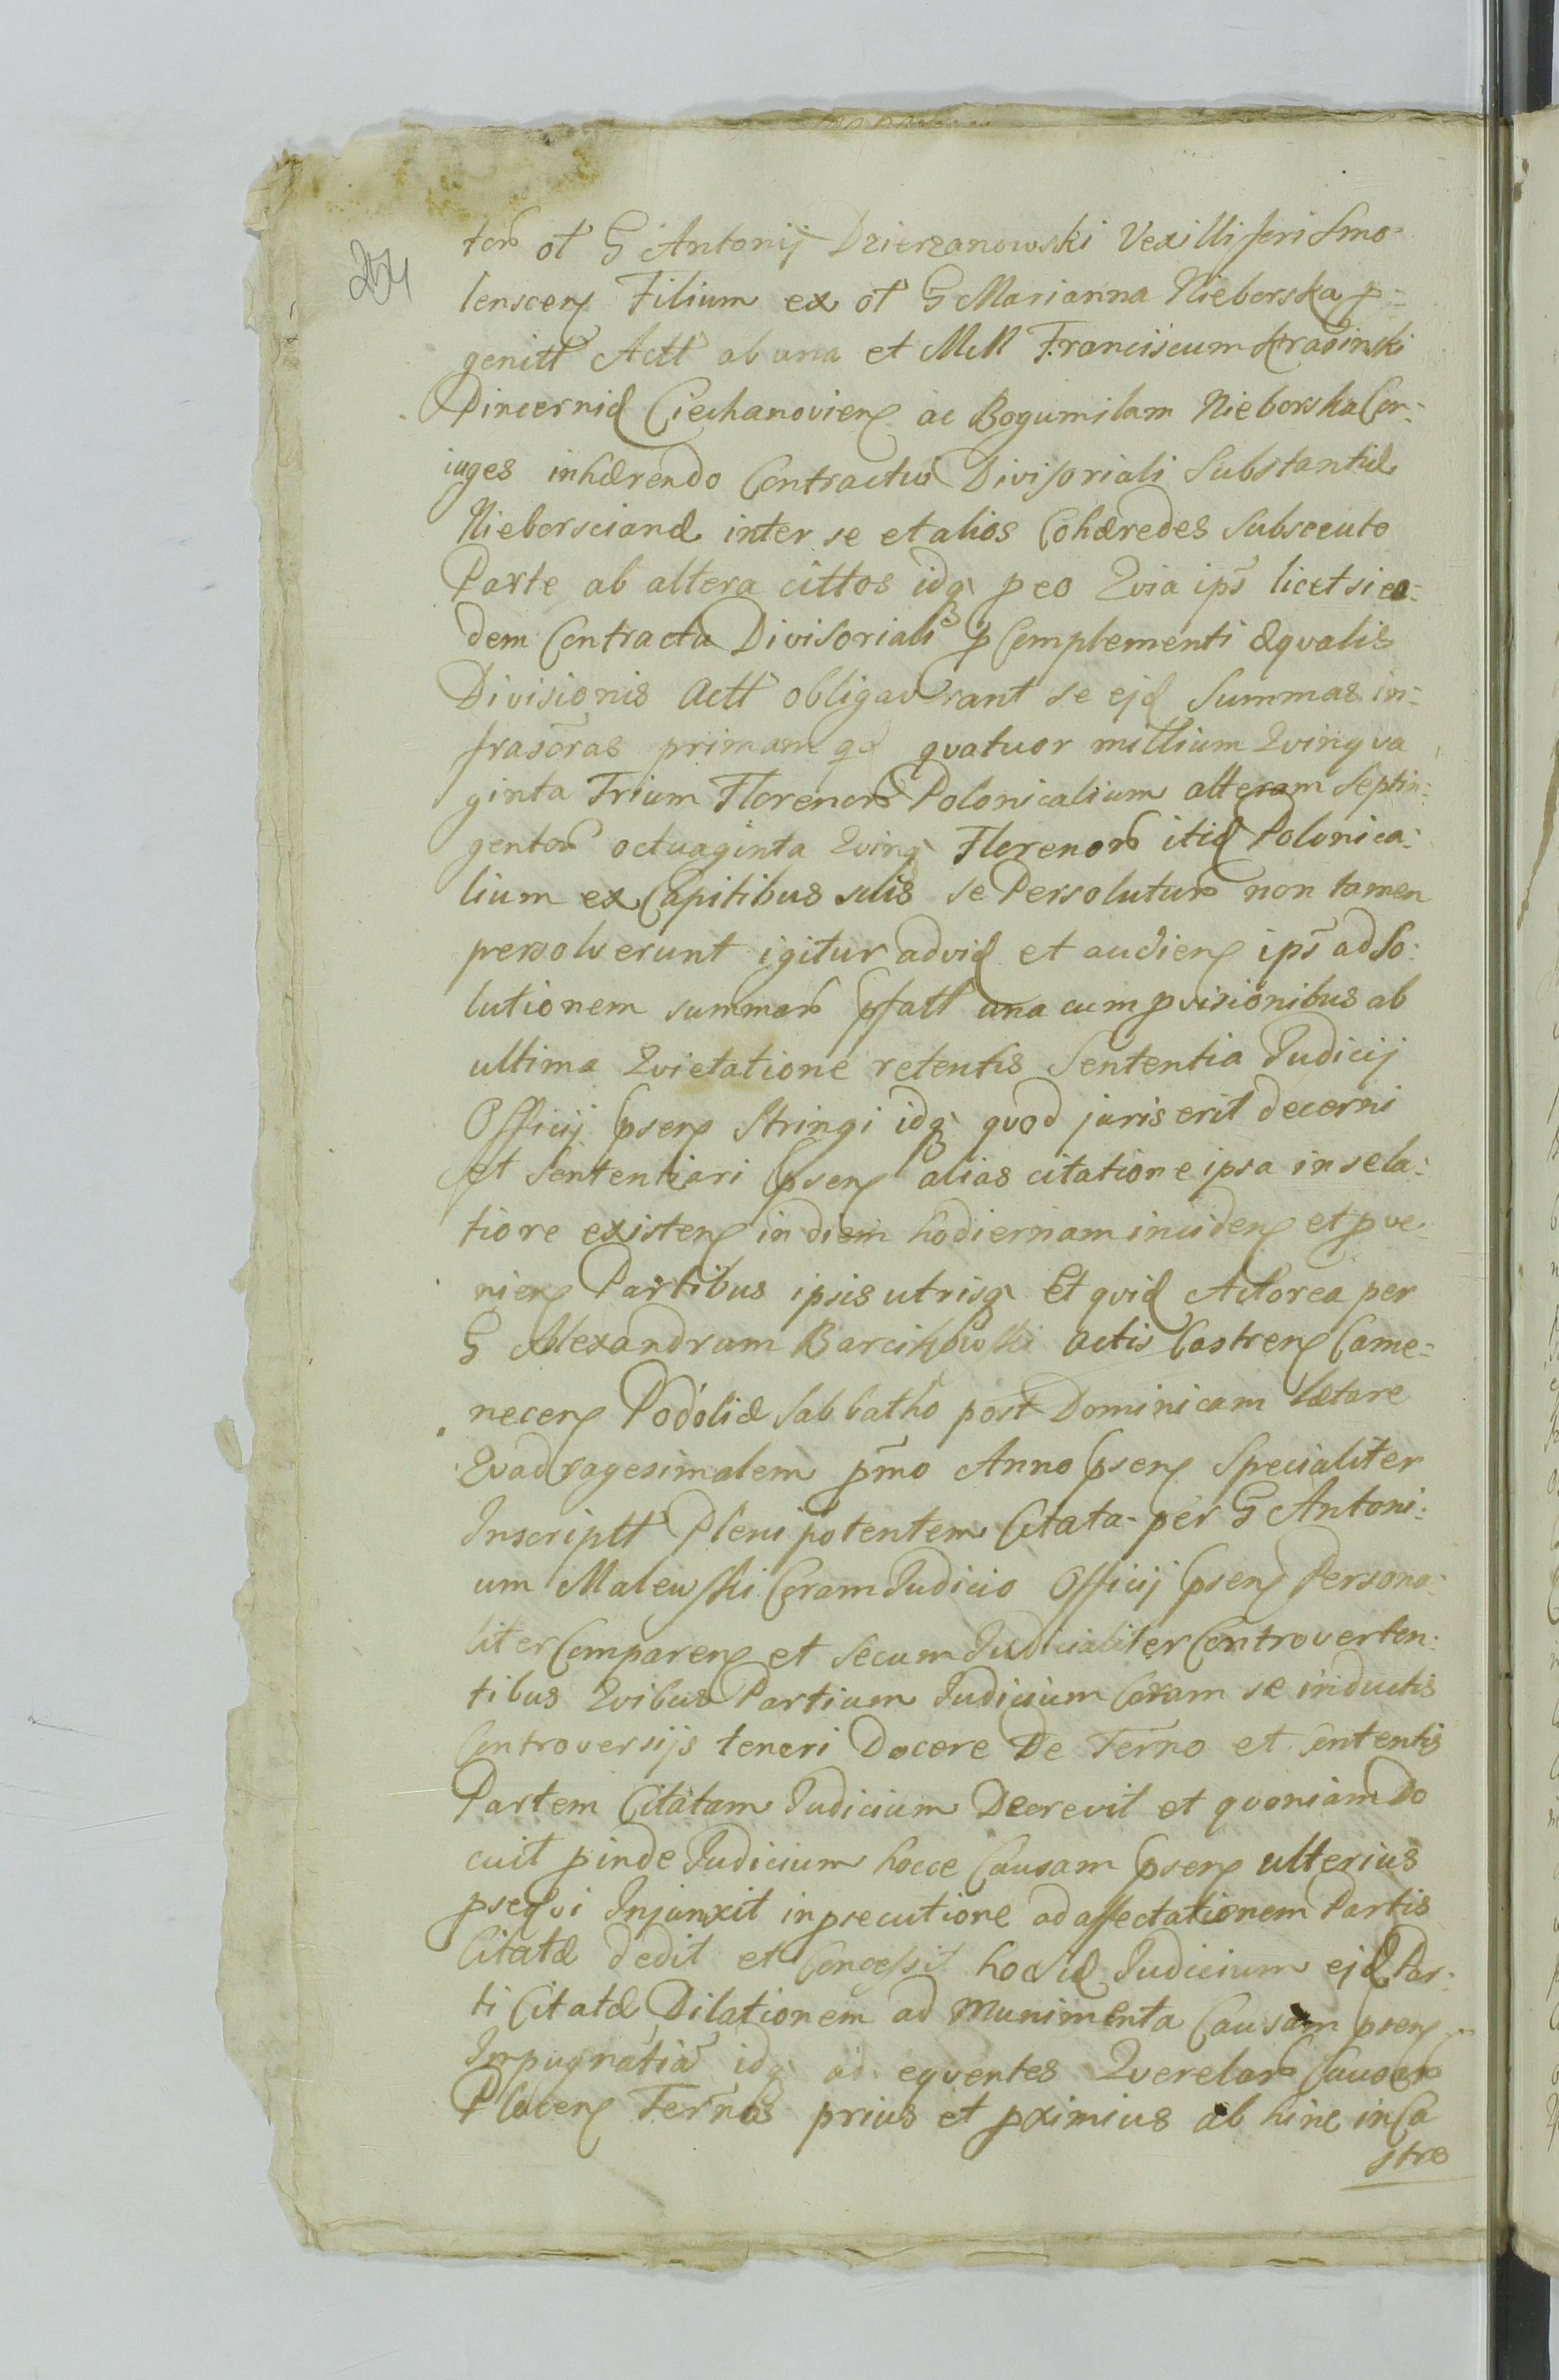 204
tor ol G Antonij Dzierzanowski Vexilliferi Smo-
lenscen Filium ex ol G Marianna Nieborska p-
genitt Actt ab una et MM Franciscum Krasinski
Pincernid Ciechanovien ac Bogumilam Nieborska Con-
iuges inhærendo Contractui Divisoriali Substantiæ
Nieborscianæ inter se et alios Cohæredes Subsecuto
Parte ab altera cittos idq peo Qvia ips licet sieo-
dem Contractu Divisoriali p Complementi æqvalis
Divisionis Actt obligaverant se ejd Summas in-
frascras primam qd qvatuor millium Qvinqva
ginta Trium Florenor Polonicalium alteram Septin-
gentor octuaginta Qvinq Florenor itid Polonica-
lium ex Capitibus suis se Persolutur non tamen
persolverunt igitur advid et audien ips ad So-
lutionem summar psatt una cum pvisionibus ab
ultima Qvietatione retentis Sententia Judicij
Officij psen Stringi idq quod juris erit decerni
et Sententiari psen alias citatione ipsa in rela-
tiore existen in diem hodiernam inciden et pve-
nien Partibus ipsis utrisq Et qvid Actorea per
G Alexandrum Barcikowski actis Castren Came-
necen Podoliæ Sabbatho post Dominicam Lætare
Qvadragesimalem pmo Anno psen Specialiter
Inscriptt Plenipotentem Citata per G Antoni-
um Malewski Coram Judicio Officij psen Persona-
liter Comparen et Secum Judicialiter Controverten-
tibus Qvibus Partium Judicium Coram se inductis
Controversijs teneri Docere De Terno et Contentis
Partem Citatam Judicium Decrevit et qvoniam Do
cuit pinde Judicium hocce Causam psen ulterius
pseqvi Injunxit in psecutione ad affectationem Partis
Citatæ dedit et Concessit Judicium ejd Par-
ti Citatæ Dilationem ad Munimenta Causam psen
Impugnatia idq ad eqventes Qverelar Causar
Placen Ternos prius et pximius ab hinc in Ca
stro